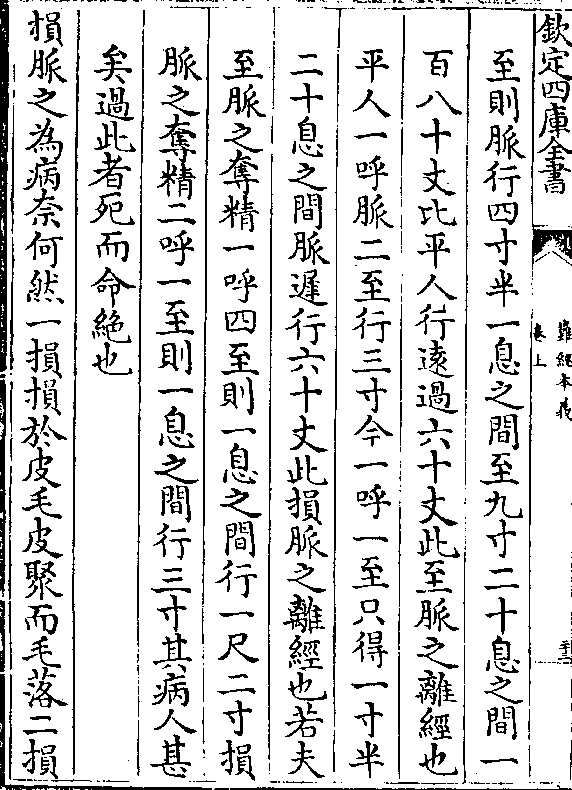 欽定四庫全書
難經本義
卷上
至則脈行四寸半一息之間至九寸二十息之間一
百八十丈比平人行遠過六十丈此至脈之離經也
平人一呼脈二至行三寸今一呼一至只得一寸半
二十息之間脈遲行六十丈此損脈之離經也若夫
至脈之奪精一呼四至則一息之間行一尺二寸損
脈之奪精二呼一至則一息之間行三寸其病人甚
矣過此者死而命絕也
損脈之為病奈何然一損損於皮毛皮聚而毛落二損